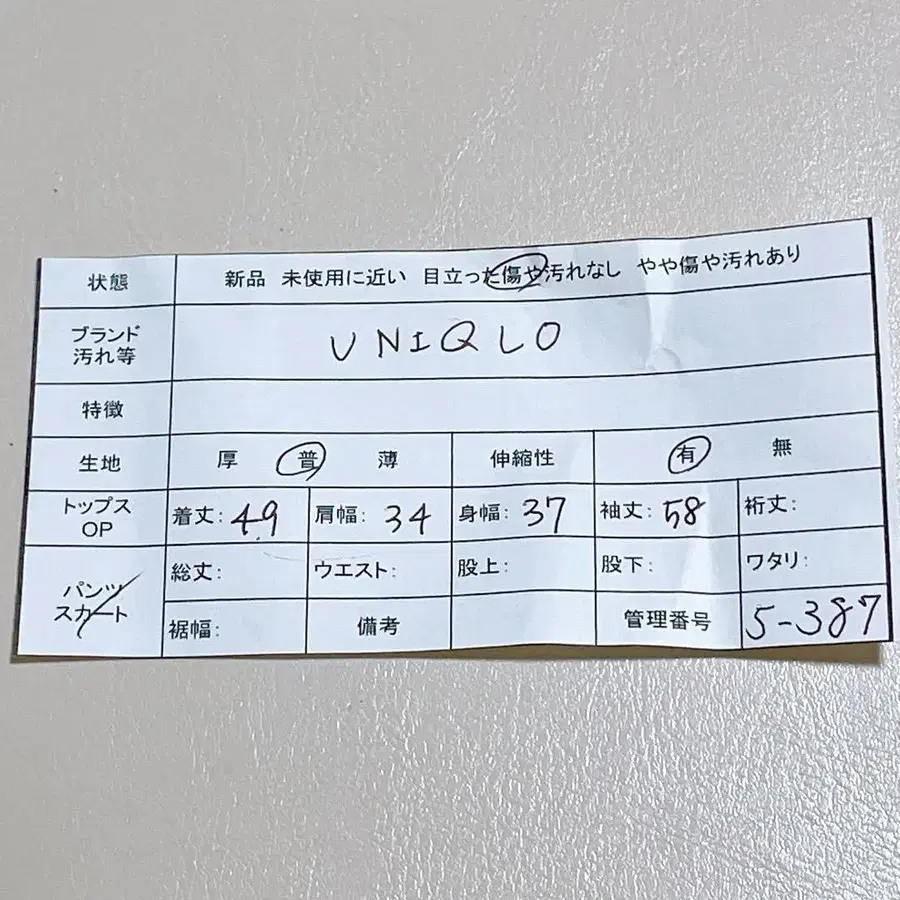 状態 新品 未使用に近い 目立った傷や汚れなし やや傷や汚れあり
ブランド
汚れ等
UNIQLO
特徴
生地 厚 普 薄 伸縮性 有 無
トップス
OP
着丈: 49 肩幅: 34 身幅: 37 袖丈: 58 裄丈:
パンツ
スカート
総丈: ウエスト: 股上: 股下: ワタリ:
裾幅: 備考 管理番号 5-387